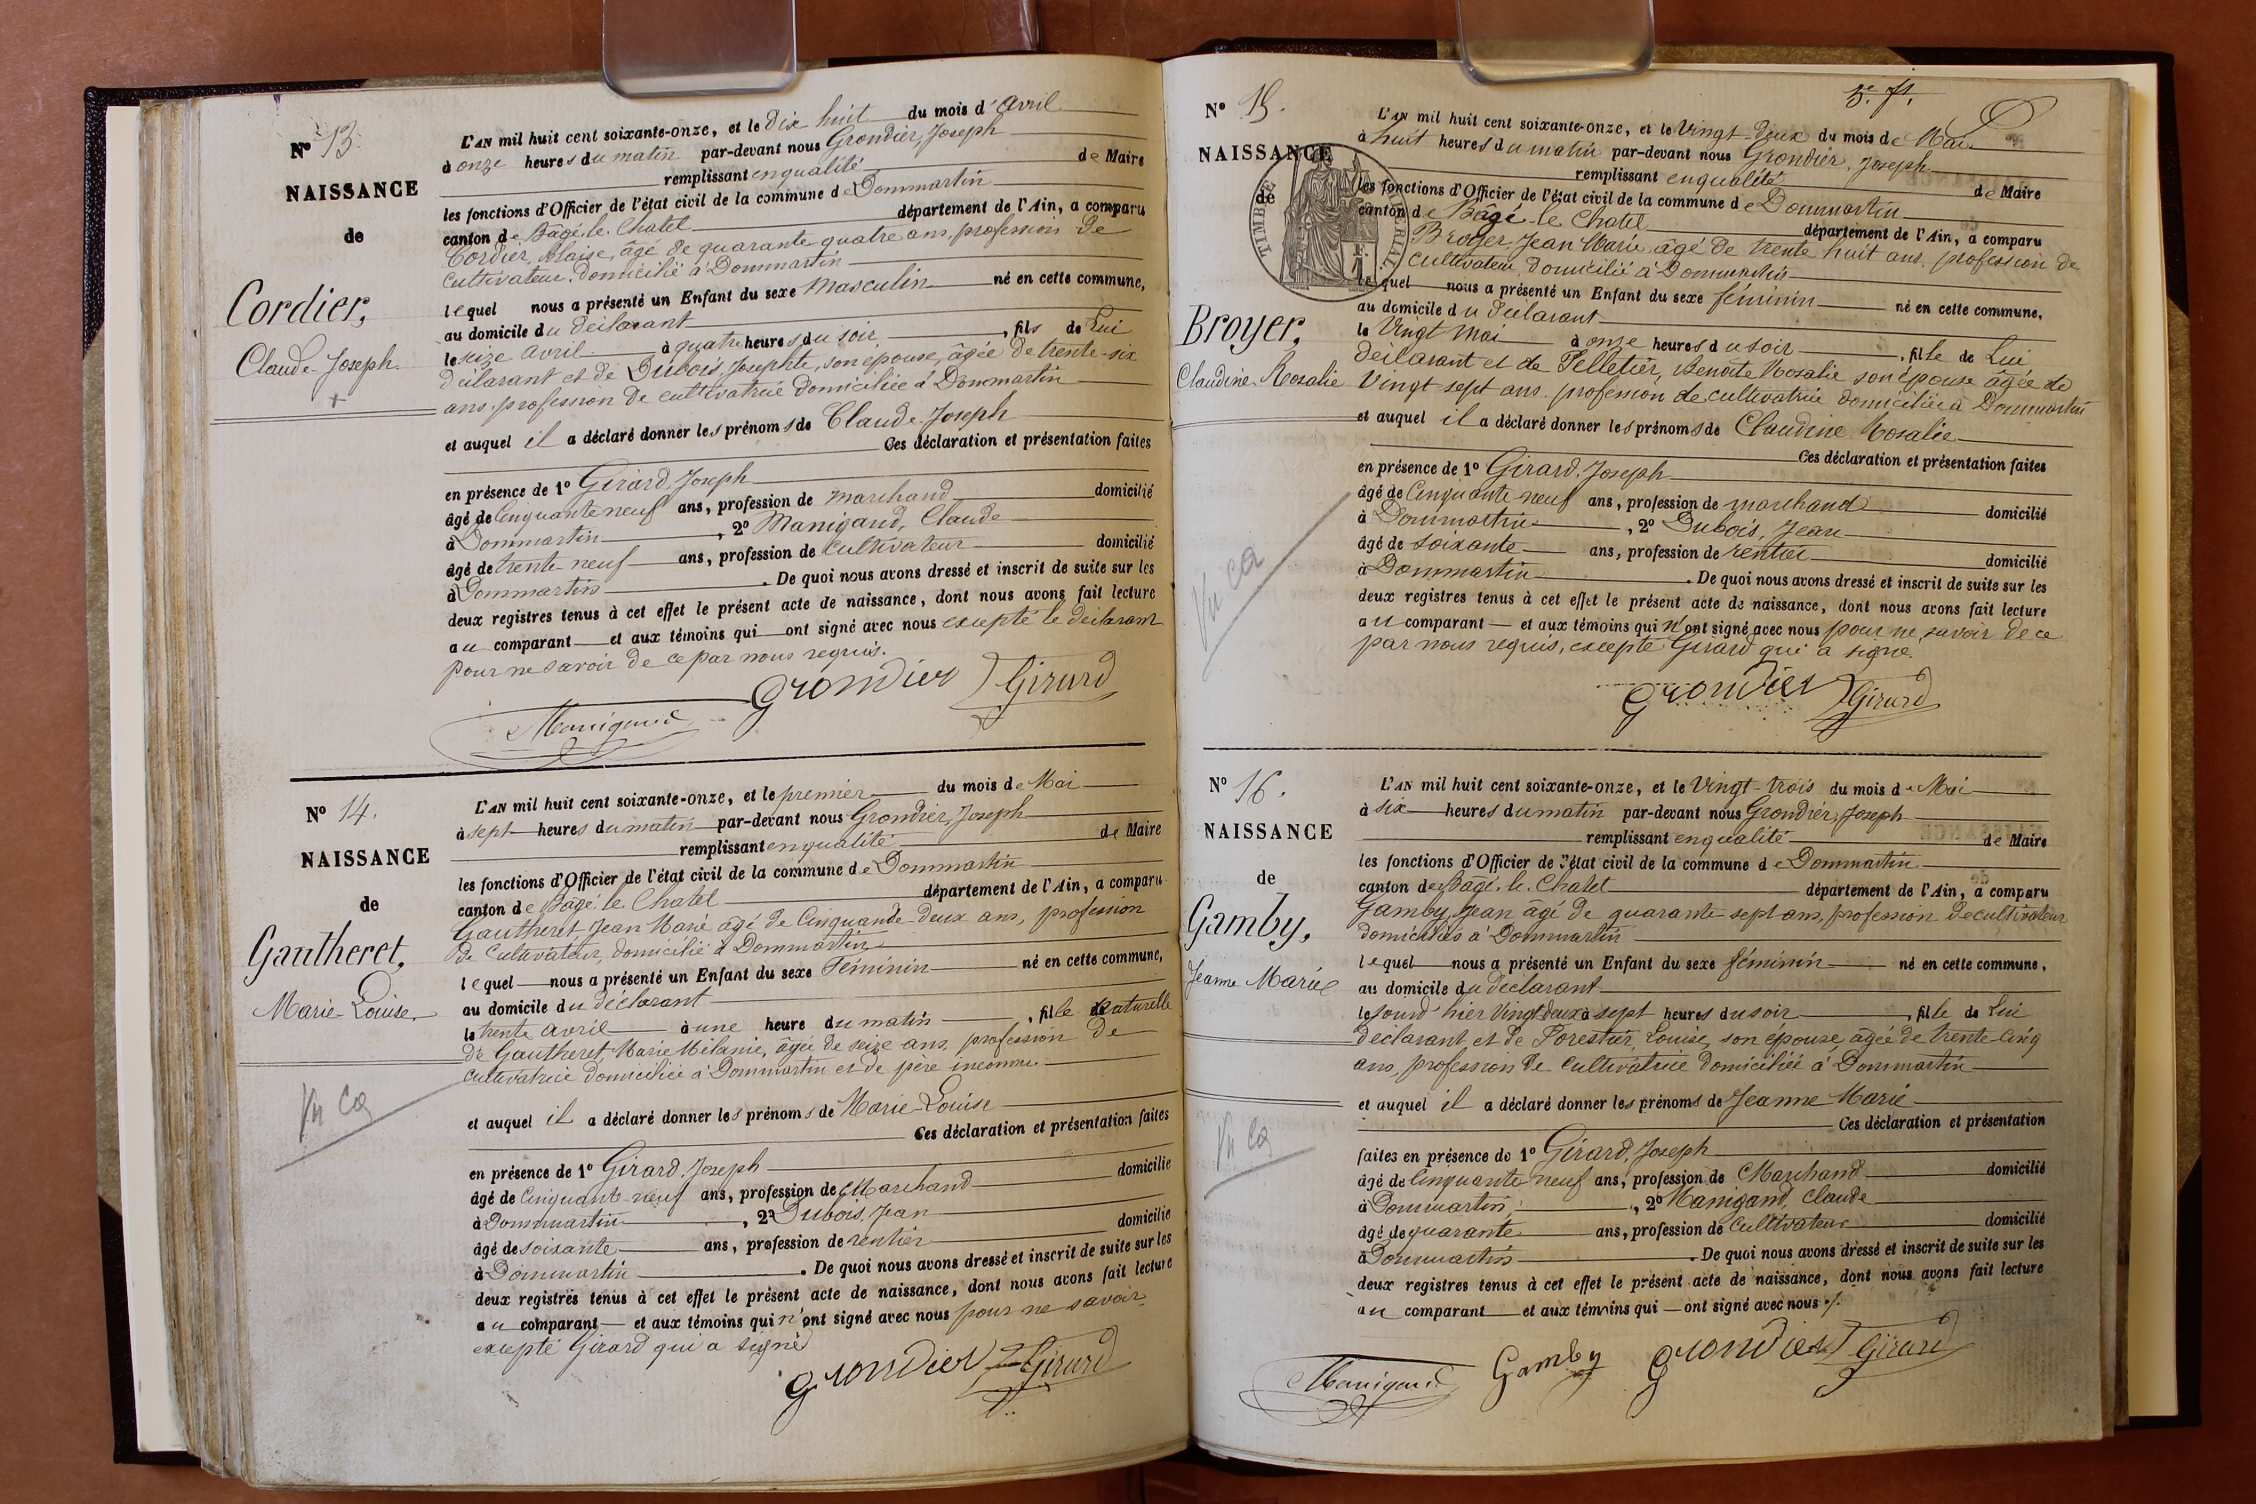 N° 13.
NAISSANCE
de
Cordier,
Claude-Joseph.
L'AN mil huit cent soixante-onze, et le dix huit du mois d'avril
à onze heures du matin par-devant nous Grondier, Joseph
remplissant en qualité de Maire
les fonctions d'Officier de l'état civil de la commune de Dommartin
canton de Bâgé-le-Chatel département de l'Ain, a comparu
Cordier, Blaise, âgé de quarante quatre ans, profession de
cultivateur, domicilié à Dommartin
lequel nous a présenté un Enfant du sexe Masculin né en cette commune,
au domicile du déclarant
le seize avril à quatre heures du soir, fils de Lui
déclarant et de Dubois, Josephte, son épouse, âgée de trente-six
ans, profession de cultivatrice domiciliée à Dommartin
et auquel il a déclaré donner les prénoms de Claude-Joseph
Ces déclaration et présentation faites
en présence de 1° Girard, Joseph
âgé de Cinquante neuf ans, profession de marchand domicilié
à Dommartin, 2° Manigand, Claude
âgé de trente neuf ans, profession de cultivateur domicilié
à Dommartin. De quoi nous avons dressé et inscrit de suite sur les
deux registres tenus à cet effet le présent acte de naissance, dont nous avons fait lecture
au comparant et aux témoins qui ont signé avec nous excepté le déclarant
pour ne savoir de ce par nous requis.
Grondier Girard
Manigand
N° 14.
NAISSANCE
de
Gautheret,
Marie-Louise
Vu ca
L'AN mil huit cent soixante-onze, et le premier du mois de Mai
à sept heures du matin par-devant nous Grondier, Joseph
remplissant en qualité de Maire
les fonctions d'Officier de l'état civil de la commune de Dommartin
canton de Bâgé le Chatel département de l'Ain, a comparu
Gautheret Jean Marie âgé de Cinquande-deux ans, profession
de Cultivateur, domicilié à Dommartin
lequel nous a présenté un Enfant du sexe Féminin né en cette commune,
au domicile du déclarant
le trente avril à une heure du matin, fille naturelle
de Gautheret, Marie Mélanie, âgée de seize ans profession de
cultivatrice domiciliée à Dommartin et de père inconnu
et auquel il a déclaré donner les prénoms de Marie-Louise
Ces déclaration et présentation faites
en présence de 1° Girard, Joseph
âgé de Cinquante-neuf ans, profession de Marchand domicilié
à Dommartin, 2° Dubois, Jean
âgé de soixante ans, profession de rentier domicilié
à Dommartin. De quoi nous avons dressé et inscrit de suite sur les
deux registres tenus à cet effet le présent acte de naissance, dont nous avons fait lecture
au comparant et aux témoins qui n'ont signé avec nous pour ne savoir
excepté Girard qui a signé
Grondier Girard
N° 15.
NAISSANCE
de
TIMBRE IMPERIAL.
Broyer,
Claudine-Rosalie
Vu ca
L'AN mil huit cent soixante-onze, et le Vingt-deux du mois de Mai
à huit heures du matin par-devant nous Grondier, Joseph
remplissant en qualité de Maire
les fonctions d'Officier de l'état civil de la commune de Dommartin
canton de Bâgé-le Chatel département de l'Ain, a comparu
Broyer, Jean-Marie, âgé de trente huit ans, profession de
cultivateur, domicilié à Dommartin
lequel nous a présenté un Enfant du sexe féminin né en cette commune,
au domicile du déclarant
le Vingt Mai à onze heures du soir, fille de Lui
déclarant et de Pelletier, Benoite Rosalie son épouse âgée de
Vingt sept ans, profession de cultivatrice domiciliée à Dommartin
et auquel il a déclaré donner les prénoms de Claudine Rosalie
Ces déclaration et présentation faites
en présence de 1° Girard, Joseph
âgé de Cinquante-neuf ans, profession de marchand domicilié
à Dommartin, 2° Dubois, Jean
âgé de soixante ans, profession de rentier domicilié
à Dommartin. De quoi nous avons dressé et inscrit de suite sur les
deux registres tenus à cet effet le présent acte de naissance, dont nous avons fait lecture
au comparant et aux témoins qui n'ont signé avec nous pour ne savoir de ce
par nous requis, excepté Girard qui a signé.
Grondier Girard
N° 16.
NAISSANCE
de
Gamby,
Jeanne Marie
Vu ca
L'AN mil huit cent soixante-onze, et le Vingt-trois du mois de Mai
à six heures du matin par-devant nous Grondier, Joseph
remplissant en qualité de Maire
les fonctions d'Officier de l'état civil de la commune de Dommartin
canton de Bâgé-le-Chatel département de l'Ain, a comparu
Gamby, Jean âgé de quarante-sept ans, profession de cultivateur
domicilié à Dommartin
lequel nous a présenté un Enfant du sexe féminin né en cette commune,
au domicile du déclarant
le jourd'hier Vingt deux à sept heures du soir, fille de Lui
déclarant, et de Forestier, Louise, son épouse, âgée de trente-cinq
ans, profession de cultivatrice domiciliée à Dommartin
et auquel il a déclaré donner les prénoms de Jeanne Marie
Ces déclaration et présentation
faites en présence de 1° Girard, Joseph
âgé de Cinquante neuf ans, profession de Marchand domicilié
à Dommartin, 2° Manigand, Claude
âgé de quarante ans, profession de Cultivateur domicilié
à Dommartin. De quoi nous avons dressé et inscrit de suite sur les
deux registres tenus à cet effet le présent acte de naissance, dont nous avons fait lecture
au comparant et aux témoins qui ont signé avec nous
Manigand Gamby Grondier Girard